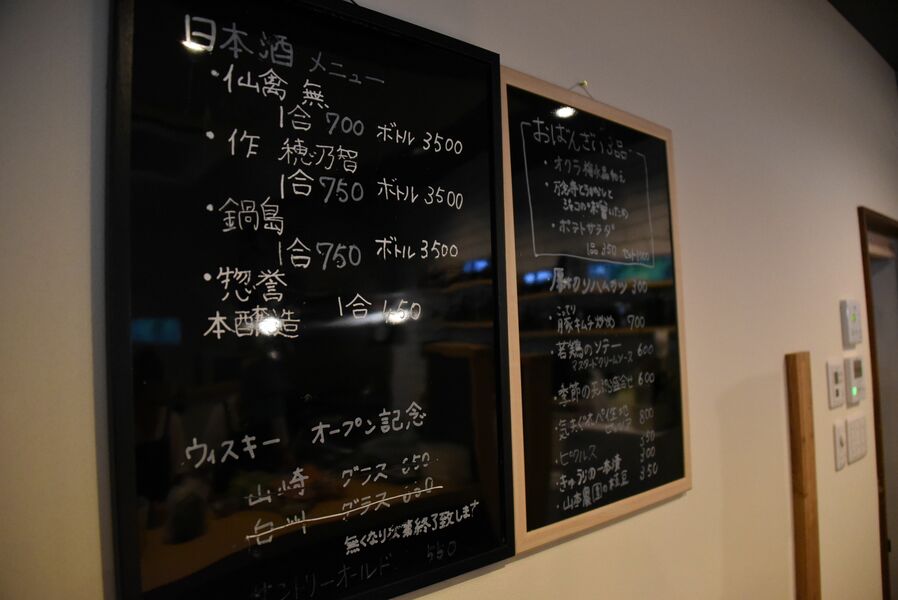 日本酒 メニュー
・仙禽 無
1合 700 ボトル 3500
・作 穂乃智
1合 750 ボトル 3500
・鍋島
1合 750 ボトル 3500
・惣誉
本醸造 1合 450
ウィスキー オープン記念
山崎 グラス 650
白州 グラス 600
無くなり次第終了致します
サントリーオールド 550
おばんざい3品
・オクラ梅水晶和え
・万願寺とうがらしと
ジャコの
・ポテトサラダ
1品 350 セット1000
厚切りハムカツ 300
・こってり
豚キムチ炒め 700
・若鶏のソテー
マスタードクリームソース 600
・季節の天ぷら盛合せ 600
800
・ピクルス 350
・きゅうりの一本漬 300
・山本農園の枝豆 350